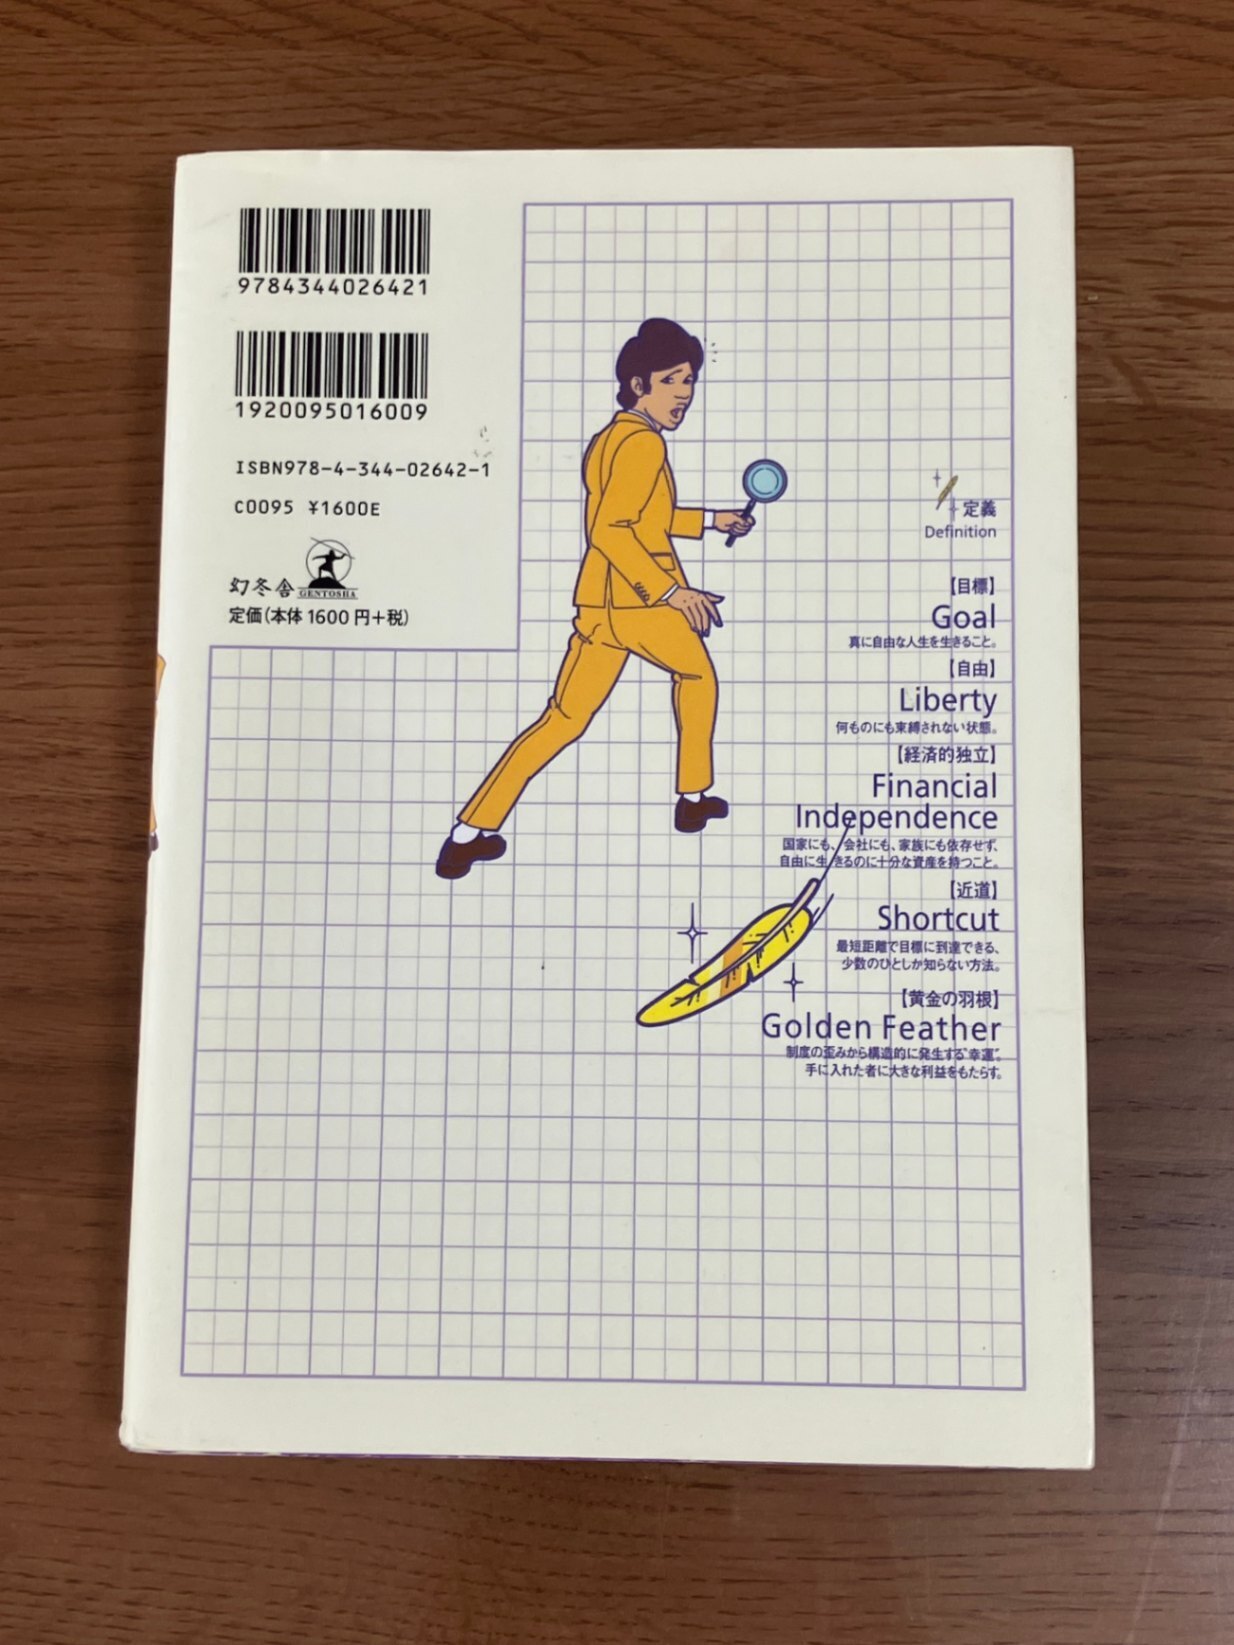 9784344026421
1920095016009
ISBN978-4-344-02642-1
C0095 ¥1600E
幻冬舎 GENTOSHA
定価(本体1600円+税)
定義
Definition
【目標】
Goal
真に自由な人生を生きること。
【自由】
Liberty
何ものにも束縛されない状態。
【経済的独立】
Financial
Independence
国家にも、会社にも、家族にも依存せず、
自由に生きるのに十分な資産を持つこと。
【近道】
Shortcut
最短距離で目標に到達できる、
少数のひとしか知らない方法。
【黄金の羽根】
Golden Feather
制度の歪みから構造的に発生する“幸運”。
手に入れた者に大きな利益をもたらす。